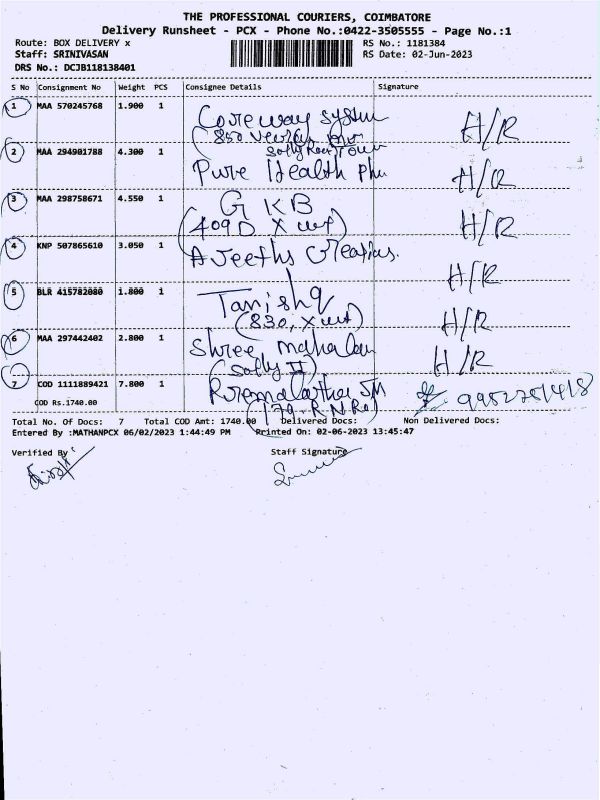 THE PROFESSIONAL COURIERS, COIMBATORE
Delivery Runsheet - PCX - Phone No.:0422-3505555 - Page No.:1
Route: BOX DELIVERY x RS No.: 1181384
Staff: SRINIVASAN RS Date: 02-Jun-2023
DRS No.: DCJB118138401
S No Consignment No Weight PCS Consignee Details Signature
1 MAA 570245768 1.900 1 system H/R
(850
2 MAA 294901788 4.300 1 Pure Health H/R
3 MAA 298758671 4.550 1 GKB H/R
(409D X cut)
4 KNP 507865610 3.050 1 Creations. H/R
5 BLR 415782080 1.800 1 Tanishq H/R
(830, X cut)
6 MAA 297442402 2.800 1 Shree H/R
7 COD 1111889421 7.800 1
COD Rs.1740.00 (179-R.N.Ro)
Total No. Of Docs: 7 Total COD Amt: 1740.00 Delivered Docs: Non Delivered Docs:
Entered By :MATHANPCX 06/02/2023 1:44:49 PM Printed On: 02-06-2023 13:45:47
Verified By Staff Signature